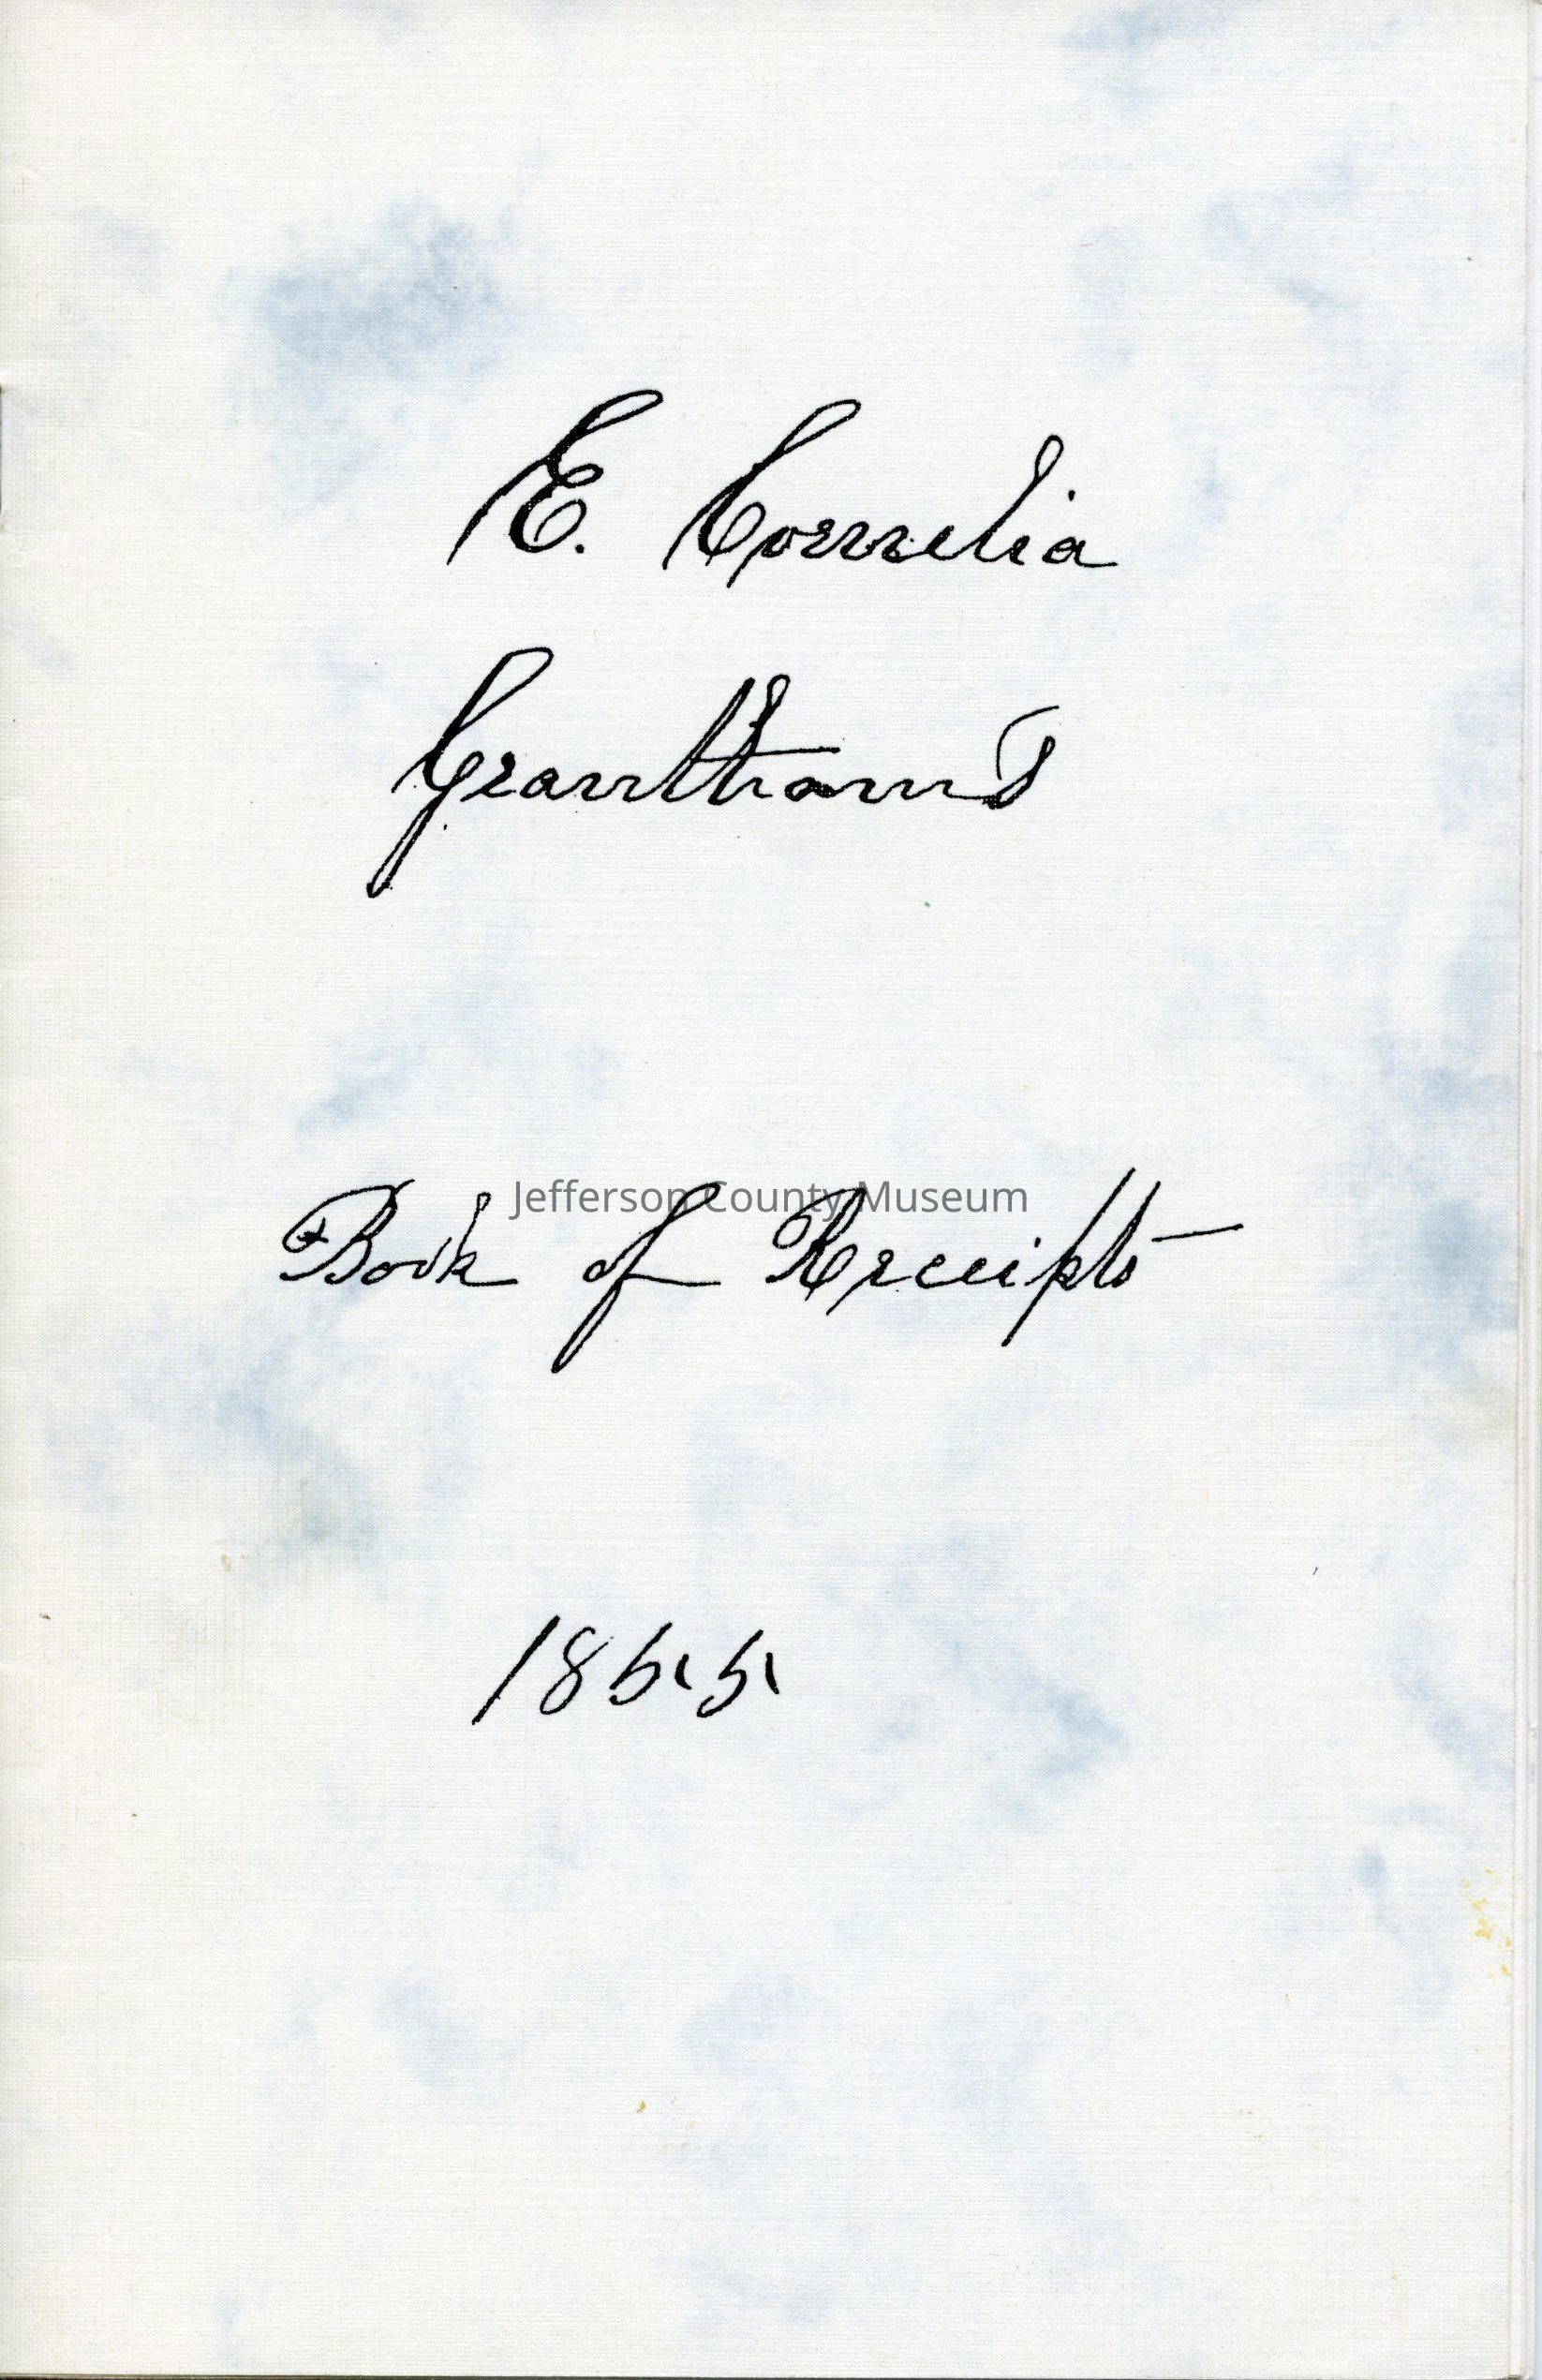 E. Cornelia
Grantham's
Jefferson County Museum
Book of Receipts
1855